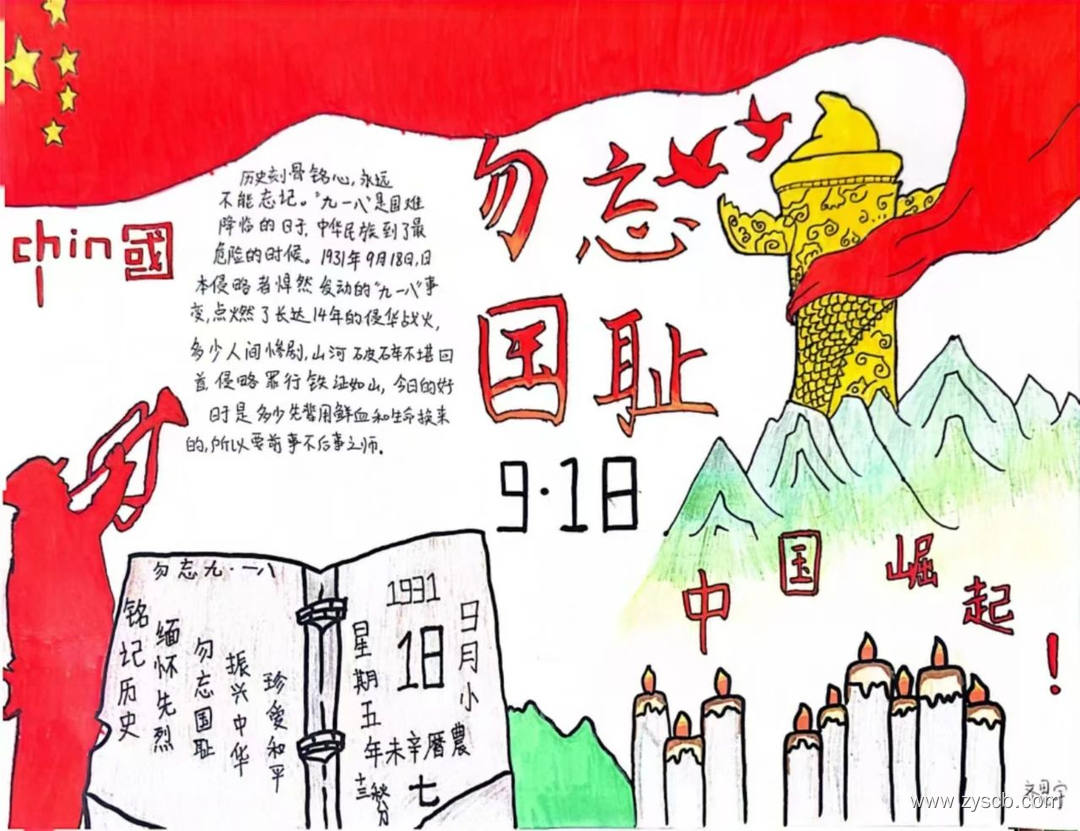 chin國
历史刻骨铭心,永远
不能忘记。“九一八”是国难
降临的日子,中华民族到了最
危险的时候。1931年9月18日,日
本侵略者悍然发动的“九一八”事
变,点燃了长达14年的侵华战火,
多少人间惨剧,山河破碎不堪回
首,侵略罪行铁证如山,今日的好
日子是多少先辈用鲜血和生命换来
的,所以要前事不忘后事之师。
勿忘
国耻
9·18
中国崛起!
勿忘九·一八
铭记历史
缅怀先烈
勿忘国耻
振兴中华
珍爱和平
1931
9月小
18
星期五
農曆辛未年
七
www.zyscb.com